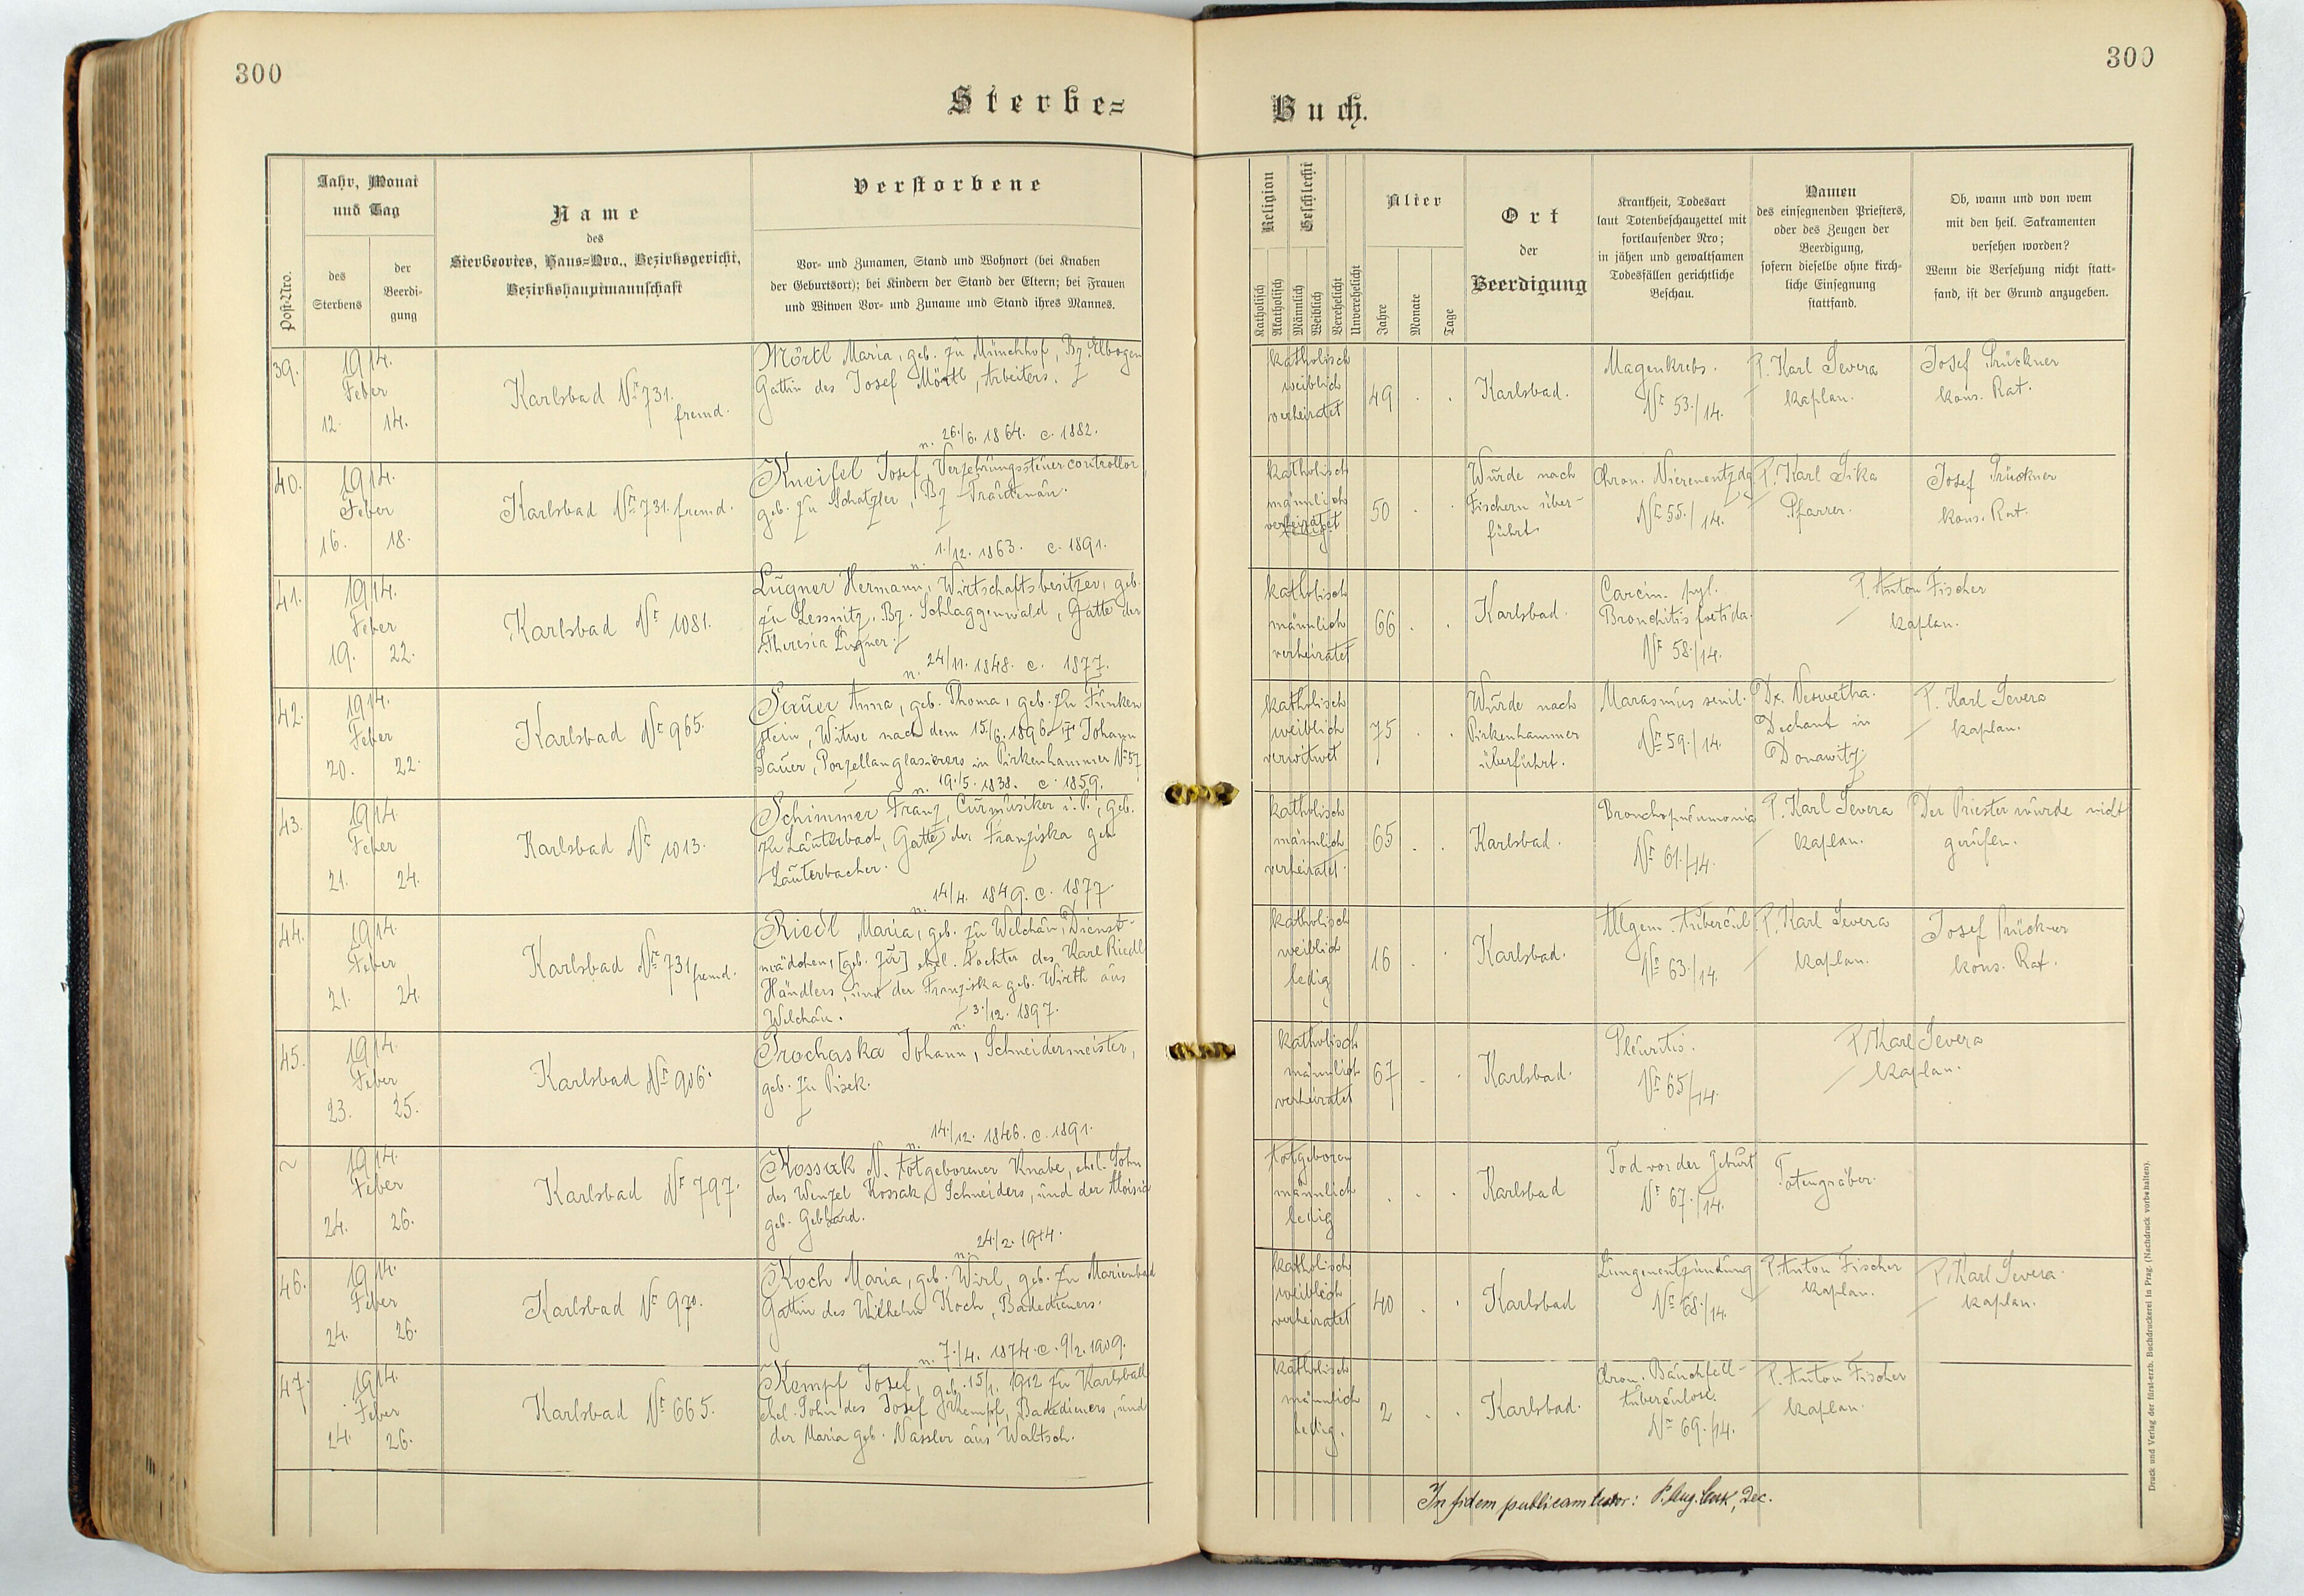 300
300
Sterbe=
Buch.
Post-Nro.
Jahr, Monat
und Tag
des
Sterbens
der
Beerdi-
gung
Name
des
Sterbeortes, Haus=Nro., Bezirksgericht,
Bezirkshauptmannschaft
Verstorbene
Vor- und Zunamen, Stand und Wohnort (bei Knaben
der Geburtsort); bei Kindern der Stand der Eltern; bei Frauen
und Witwen Vor- und Zuname und Stand ihres Mannes.
Religion
Katholisch
Akatholisch
Geschlecht
Männlich
Weiblich
Verehelicht
Unverehelicht
Alter
Jahre
Monate
Tage
Ort
der
Beerdigung
Krankheit, Todesart
laut Totenbeschauzettel mit
fortlaufender Nro;
in jähen und gewaltsamen
Todesfällen gerichtliche
Beschau.
Namen
des einsegnenden Priesters,
oder des Zeugen der
Beerdigung,
sofern dieselbe ohne kirch-
liche Einsegnung
stattfand.
Ob, wann und von wem
mit den heil. Sakramenten
versehen worden?
Wenn die Versehung nicht statt-
fand, ist der Grund anzugeben.
39.
1914.
Feber
12. 14.
Karlsbad Nr 731.
fremd.
Mörtl Maria, geb. zu Münchhof, Bz. Elbogen
Gattin des Josef Mörtl, Arbeiters.
n. 26./6. 1864. c. 1882.
katholisch
weiblich
verheiratet
49 . .
Karlsbad.
Magenkrebs.
Nr 53./14.
P. Karl Severa
Kaplan.
Josef Prückner
kons. Rat.
40.
1914.
Feber
16. 18.
Karlsbad Nr 731. fremd.
Kneifel Josef, Verzehrungssteuercontrollor
geb. zu Schatzler, Bz Trautenau.
n. 1./12. 1863. c. 1891.
katholisch
männlich
verheiratet
50 . .
Wurde nach
Fischern über-
führt
Chron. Nierenentzdg
Nr 55./14.
P. Karl Sika
Pfarrer.
Josef Prückner
kons. Rat.
41.
1914.
Feber
19. 22.
Karlsbad Nr 1081.
Lugner Hermann, Wirtschaftsbesitzer, geb.
zu Lessnitz, Bz. Schlaggenwald, Gatte der
Theresia Lugner.
n. 24/11. 1848. c. 1877.
katholisch
männlich
verheiratet
66 . .
Karlsbad.
Carcin. pyl.
Bronchitis foetida.
Nr 58./14.
P. Anton Fischer
Kaplan.
42.
1914.
Feber
20. 22.
Karlsbad Nr 965.
Sauer Anna, geb. Thoma, geb. zu Funken
stein, Witwe nach dem 15./6. 1896 † Johann
Sauer, Porzellanglasierers in Pirkenhammer Nr 57
n. 19./5. 1838. c. 1859.
katholisch
weiblich
verwitwet
75 . .
Wurde nach
Pirkenhammer
überführt.
Marasmus senil.
Nr 59./14.
Dechant in
Donawitz
P. Karl Severa
Kaplan.
43.
1914
Feber
21. 24.
Karlsbad Nr 1013.
Schimmer Franz, Curmusiker i. P., geb.
zu Lauterbach, Gatte der Franziska geb
Lauterbacher.
n. 14/4. 1849. c. 1877.
katholisch
männlich
verheiratet.
65 . .
Karlsbad.
Bronchopneumonia
Nr 61./14.
P. Karl Severa
Kaplan.
Der Priester wurde nicht
gerufen.
44.
1914.
Feber
21. 24.
Karlsbad Nr 731 fremd.
Riedl Maria, geb. zu Welchau, Dienst-
mädchen, [geb. zu] ehel. Tochter des Karl Riedl
Händlers, und der Franziska geb. Wirth aus
Welchau.
n. 3./12. 1897.
katholisch
weiblich
ledig
16 . .
Karlsbad.
Allgem. Tubercul.
Nr 63./14.
P. Karl Severa
Kaplan.
Josef Prückner
kons. Rat.
45.
1914.
Feber
23. 25.
Karlsbad Nr 906.
Prochaska Johann, Schneidermeister,
geb. zu Pisek.
n. 14./12. 1846. c. 1891.
katholisch
männlich
verheiratet
67 . .
Karlsbad.
Pleuritis.
Nr 65/14.
P. Karl Severa
Kaplan.
~
1914.
Feber
24. 26.
Karlsbad Nr 797.
Kossak N. totgeborener Knabe, ehel. Sohn
des Wenzel Kossak, Schneiders, und der Aloisia
geb. Gebhard.
n. 24./2. 1914.
totgeboren
männlich
ledig
. . .
Karlsbad
Tod vor der Geburt
Nr 67./14.
Totengräber.
46.
1914.
Feber
24. 26.
Karlsbad Nr 970.
Koch Maria, geb. Wirl, geb. zu Marienbad
Gattin des Wilhelm Koch, Badedieners.
n. 7./4. 1874. c. 9/2. 1909.
katholisch
weiblich
verheiratet
40 . .
Karlsbad
Lungenentzündung
Nr 68./14.
P. Anton Fischer
Kaplan.
P. Karl Severa.
Kaplan.
47.
1914.
Feber
24. 26.
Karlsbad Nr 665.
Kempf Josef, geb. 15/1. 1912 zu Karlsbad
ehel. Sohn des Josef Kempf, Badedieners, und
der Maria geb. Nassler aus Waltsch.
katholisch
männlich
ledig.
2 . .
Karlsbad.
Chron. Bauchfell-
tuberculose.
Nr 69./14.
P. Anton Fischer
Kaplan.
In fidem publicam testor: P. Aug. Dec.
Druck und Verlag der fürst-erzb. Buchdruckerei in Prag. (Nachdruck vorbehalten).